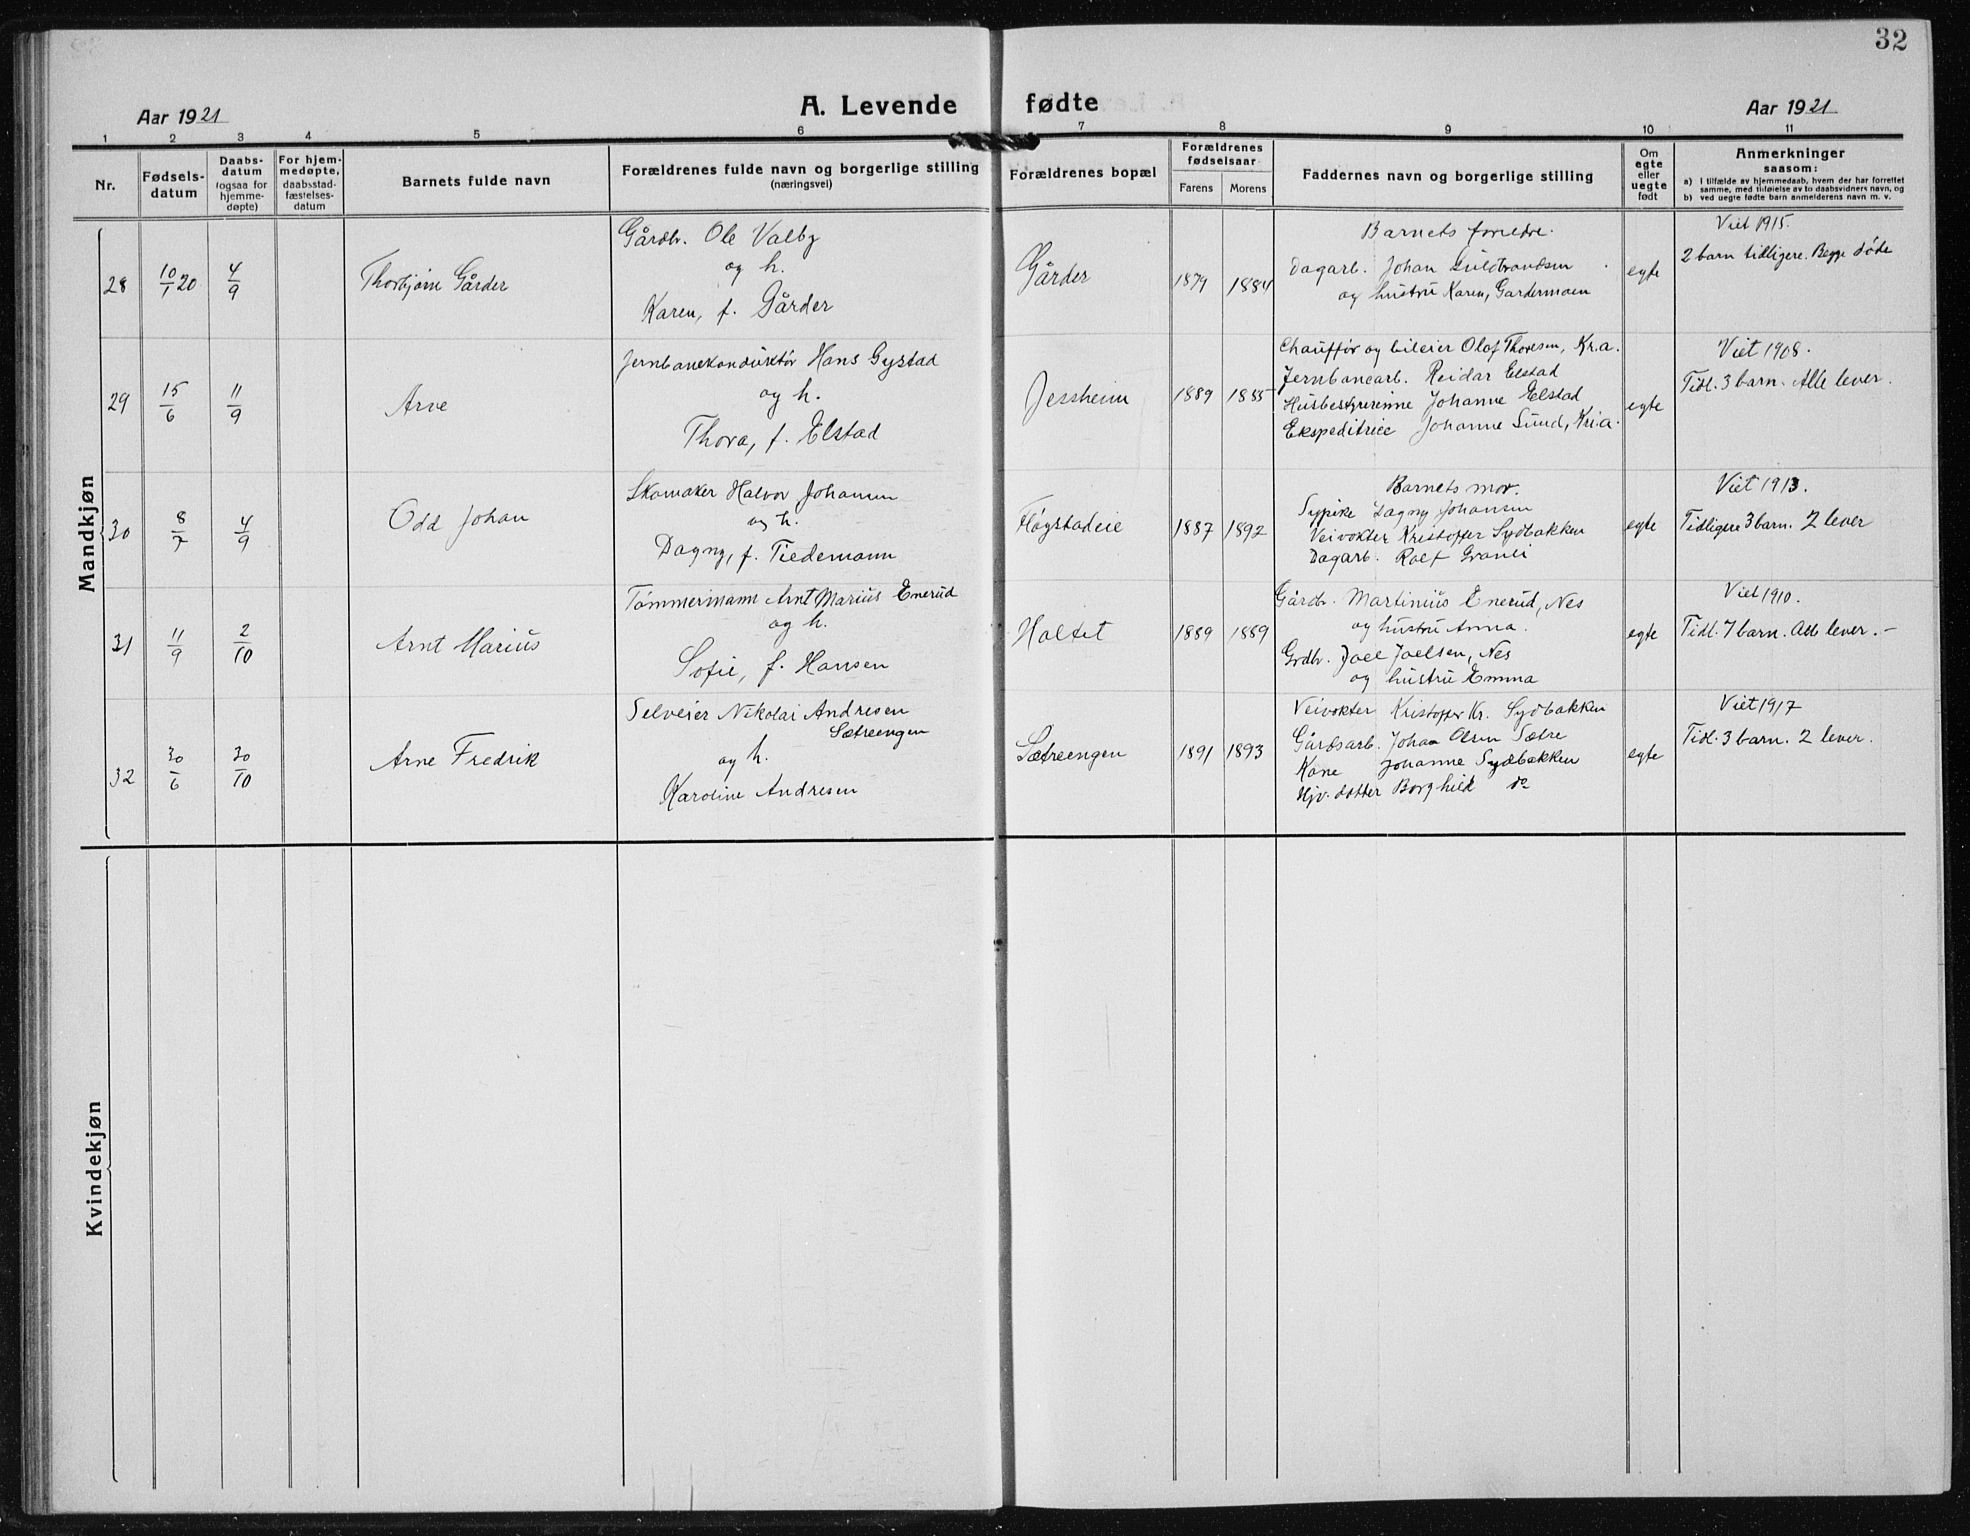 32
Aar 1921
A. Levende fødte
Aar 1921
1 2 3 4 5 6 7 8 9 10 11
Nr.
Fødsels-
datum
Daabs-
datum
(ogsaa for
hjemme-
døpte)
For hjem-
medøpte,
daabsstad-
fæstelses-
datum
Barnets fulde navn
Forældrenes fulde navn og borgerlige stilling
(næringsvei)
Forældrenes bopæl
Forældrenes
fødselsaar
Farens Morens
Faddernes navn og borgerlige stilling
Om
egte
eller
uegte
født
Anmerkninger
saasom:
a) I tilfælde av hjemmedaab, hvem der har forrettet
samme, med tilføielse av to daabsvidners navn, og
b) ved uegte fødte barn anmelderens navn m. v.
Mandkjøn
28
10/1 20
4/9
Thorbjørn Gårder
Gårdbr. Ole Valby
og h.
Karen, f. Gårder
Gårder
1879 1884
Barnets foreldre.
Dagarb. Johan Guldbrandsen
og hustru Karen, Gardermoen
egte
Viet 1915.
2 barn tidligere. Begge døde
29
15/6
11/9
Arne
Jernbanekonduktør Hans Gystad
og h.
Thora, f. Elstad
Jessheim
1889 1885
Chauffør og bileier Olaf Thoresen, Kr.a.
Jernbanearb. Reidar Elstad
Husbestyrerinne Johanne Elstad
Ekspeditrice Johanne Sund, Kr.a.
egte
Viet 1908.
Tidl. 3 barn. Alle lever.
30
8/7
4/9
Odd Johan
Skomaker Halvor Johansen
og h.
Dagny, f. Tiedemann
Fløgstadeie
1887 1892
Barnets mor.
Sypike Dagny Johansen
Veivokter Kristoffer Sydbakken
Dagarb. Rolf Granli
egte
Viet 1913.
Tidligere 3 barn. 2 lever
31
11/9
2/10
Arnt Marius
Tømmermann Arnt Marius Enerud
og h.
Sofie, f. Hansen
Holtet
1889 1889
Gårdbr. Martinius Enerud, Nes
og hustru Anna.
Grdbr. Joel Joelsen, Nes
og hustru Emma
egte
Viet 1910.
Tidl. 7 barn. Alle lever. -
32
30/6
30/10
Arne Fredrik
Selveier Nikolai Andresen
Sætreengen
og h.
Karoline Andresen
Sætreengen
1891 1893
Veivokter Kristoffer Kr. Sydbakken
Gårdsarb. Johan Olsen Sætre
Kone Johanne Sydbakken
Hjv. datter Borghild do
egte
Viet 1917
Tidl. 3 barn. 2 lever.
Kvindekjøn